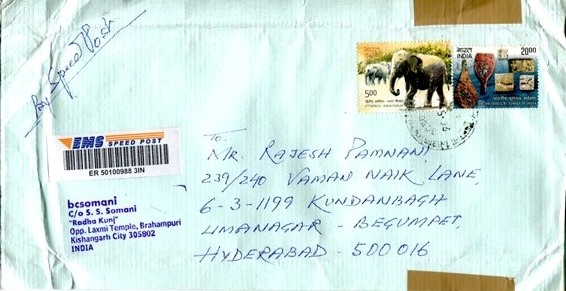 By Speed Post
5.00
भारत
INDIA
20.00
EMS SPEED POST
ER 50100988 3IN
bcsomani
C/o S. S. Somani
"Radha Kunj"
Opp. Laxmi Temple, Brahampuri
Kishangarh City 305802
INDIA
To,
MR. RAJESH PAMNANI
239/240 VAMAN NAIK LANE,
6-3-1199 KUNDANBAGH
UMANAGAR - BEGUMPET,
HYDERABAD - 500 016